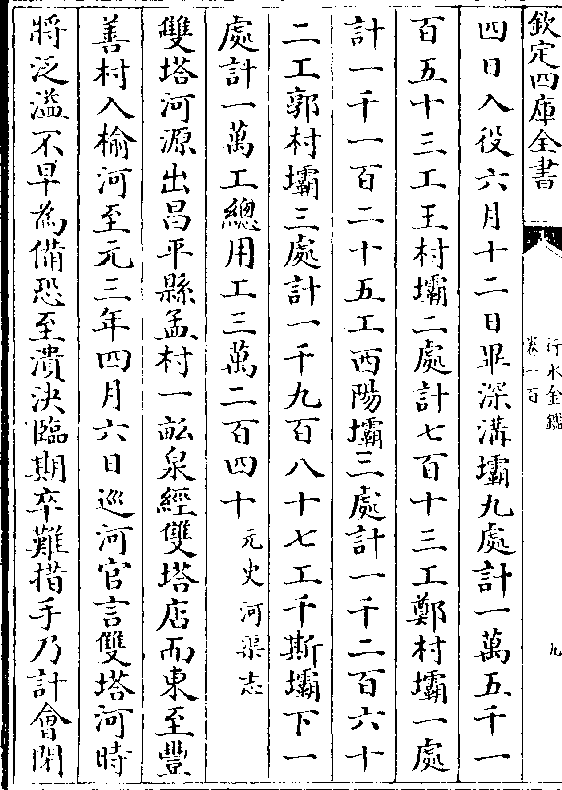 欽定四庫全書
行水金鑑
卷一百
九
四日入役六月十二日畢深溝壩九處計一萬五千一
百五十三工王村壩二處計七百十三工鄭村壩一處
計一千一百二十五工西陽壩三處計一千二百六十
二工郭村壩三處計一千九百八十七工千斯壩下一
處計一萬工總用工三萬二百四十元史河渠志
雙塔河源出昌平縣孟村一畝泉經雙塔店而東至豐
善村入榆河至元三年四月六日巡河官言雙塔河時
將泛溢不早為備恐至潰決臨期卒難措手乃計會閉